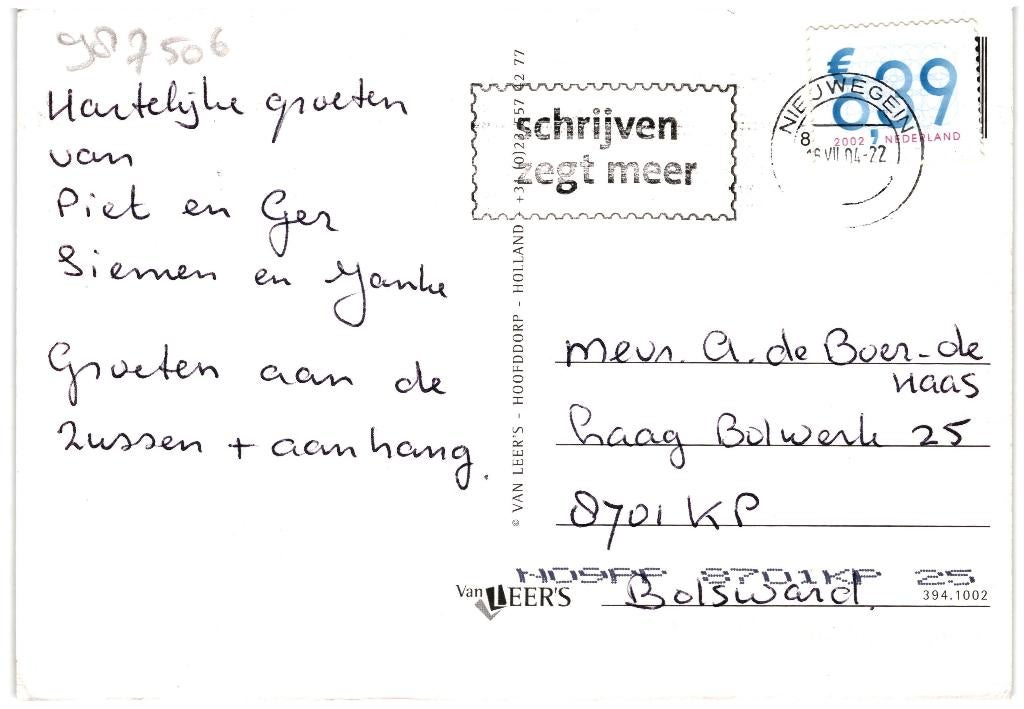 987506
Hartelijke groeten
van
Piet en Ger
Siemen en Janke
Groeten aan de
zussen + aanhang.
schrijven
zegt meer
NIEUWEGEIN
8
VII 04-22
€ 0,39
2002 NEDERLAND
© VAN LEER'S - HOOFDDORP - HOLLAND -
Mevr. A. de Boer-de
Haas
Laag Bolwerk 25
8701 KP
8701KP 25
Bolsward.
Van LEER'S
394.1002